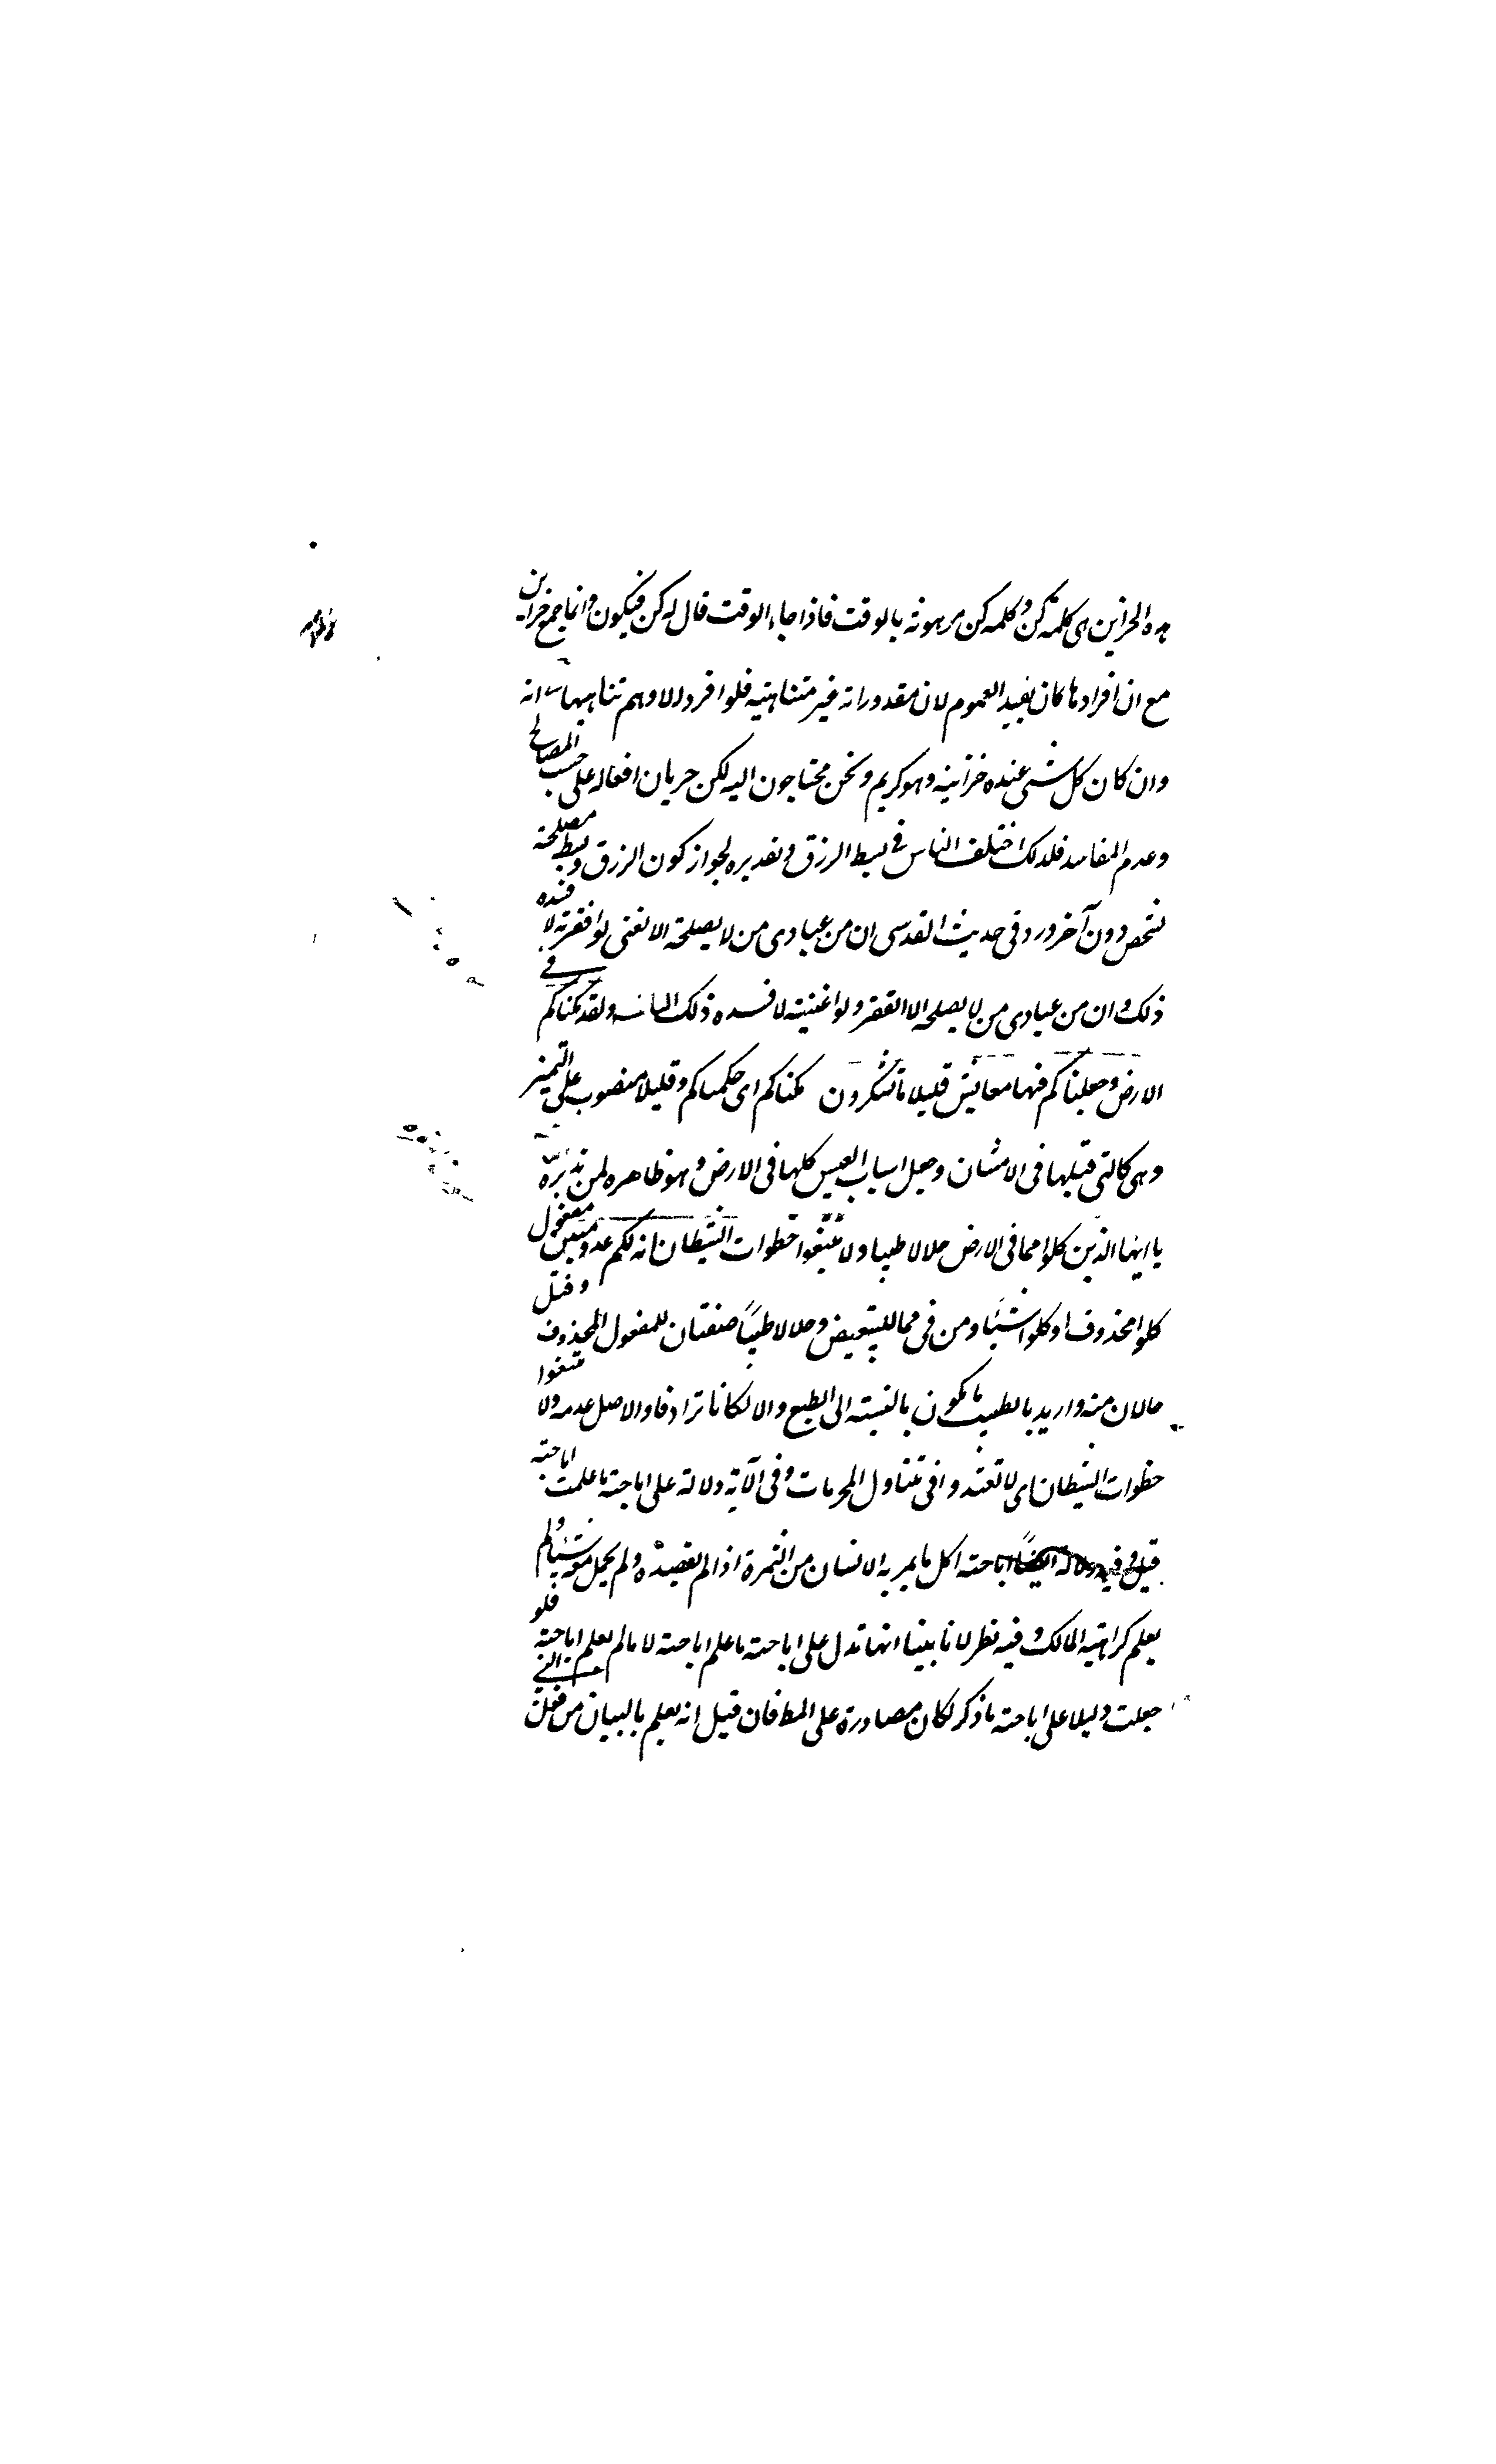 هذه الخزاين هى كلمة كن وكلمه كن مرهونة بالوقت فاذا جاء الوقت قال له كن فيكون وانما جمع خزاين
مع ان افرادها كان يفيد العموم لان مقدوراته غير متناهية فلو افرد لاوهم تناهيها انه
وان كان كل شىء عنده خزاينه وهو كريم ونحن محتاجون اليه لكن جريان افعاله على حسب المصالح
وعدم المفاسد فلذلك اختلف الناس في بسط الرزق وتقديره لجواز كون الرزق وبسط مصلحة
لشخص دون آخر ورد فى حديث القدسى ان من عبادى من لا يصلحه الا الغنى لو افقرته لافسده
ذلك وان من عبادى من لا يصلحه الا الفقر ولو اغنيته لافسده ذلك ولقد مكناكم في
الارض وجعلنا كم فيها معايش قليلا ما تشكرون مكناكم اى حكمناكم وقليلا منصوب على التميز
وهى كالتى قبلها فى الامتنان وجعل اسباب العيش كلها فى الارض وهو ظاهره لمن تدبره
يا ايها الذين كلوا مما فى الارض حلالا طيبا ولا تتبعوا خطوات الشيطان انه لكم عدو مبين مفعول
كلوا محذوف او كلوا شيئا ومن فى مما للتبعيض وحلالا طيبا صفتان للمفعول المحذوف وقيل
حالان منه واريد بالطيب ما يكون بالنسبة الى الطبع والا لكانا ترادفا والاصل عدمه ولا تتبعوا
خطوات الشيطان اى لا تعتدوا فى تناول المحرمات وفى الآية دلالة على اباحة ما علمت اباحته
قيل وفيه دلالة ايضا اباحته اكل ما يمر به الانسان من الثمرة اذا لم يقصده ولم يحمل معه شيئا ولم
يعلم كراهية المالك وفيه نظر لانا بينا انها تدل على اباحة ما علم اباحته لا ما لم يعلم اباحته فلو
جعلت دليلا على اباحة ما ذكر لكان مصادرة على المط فان قيل انه يعلم بالبيان من فعل النبي